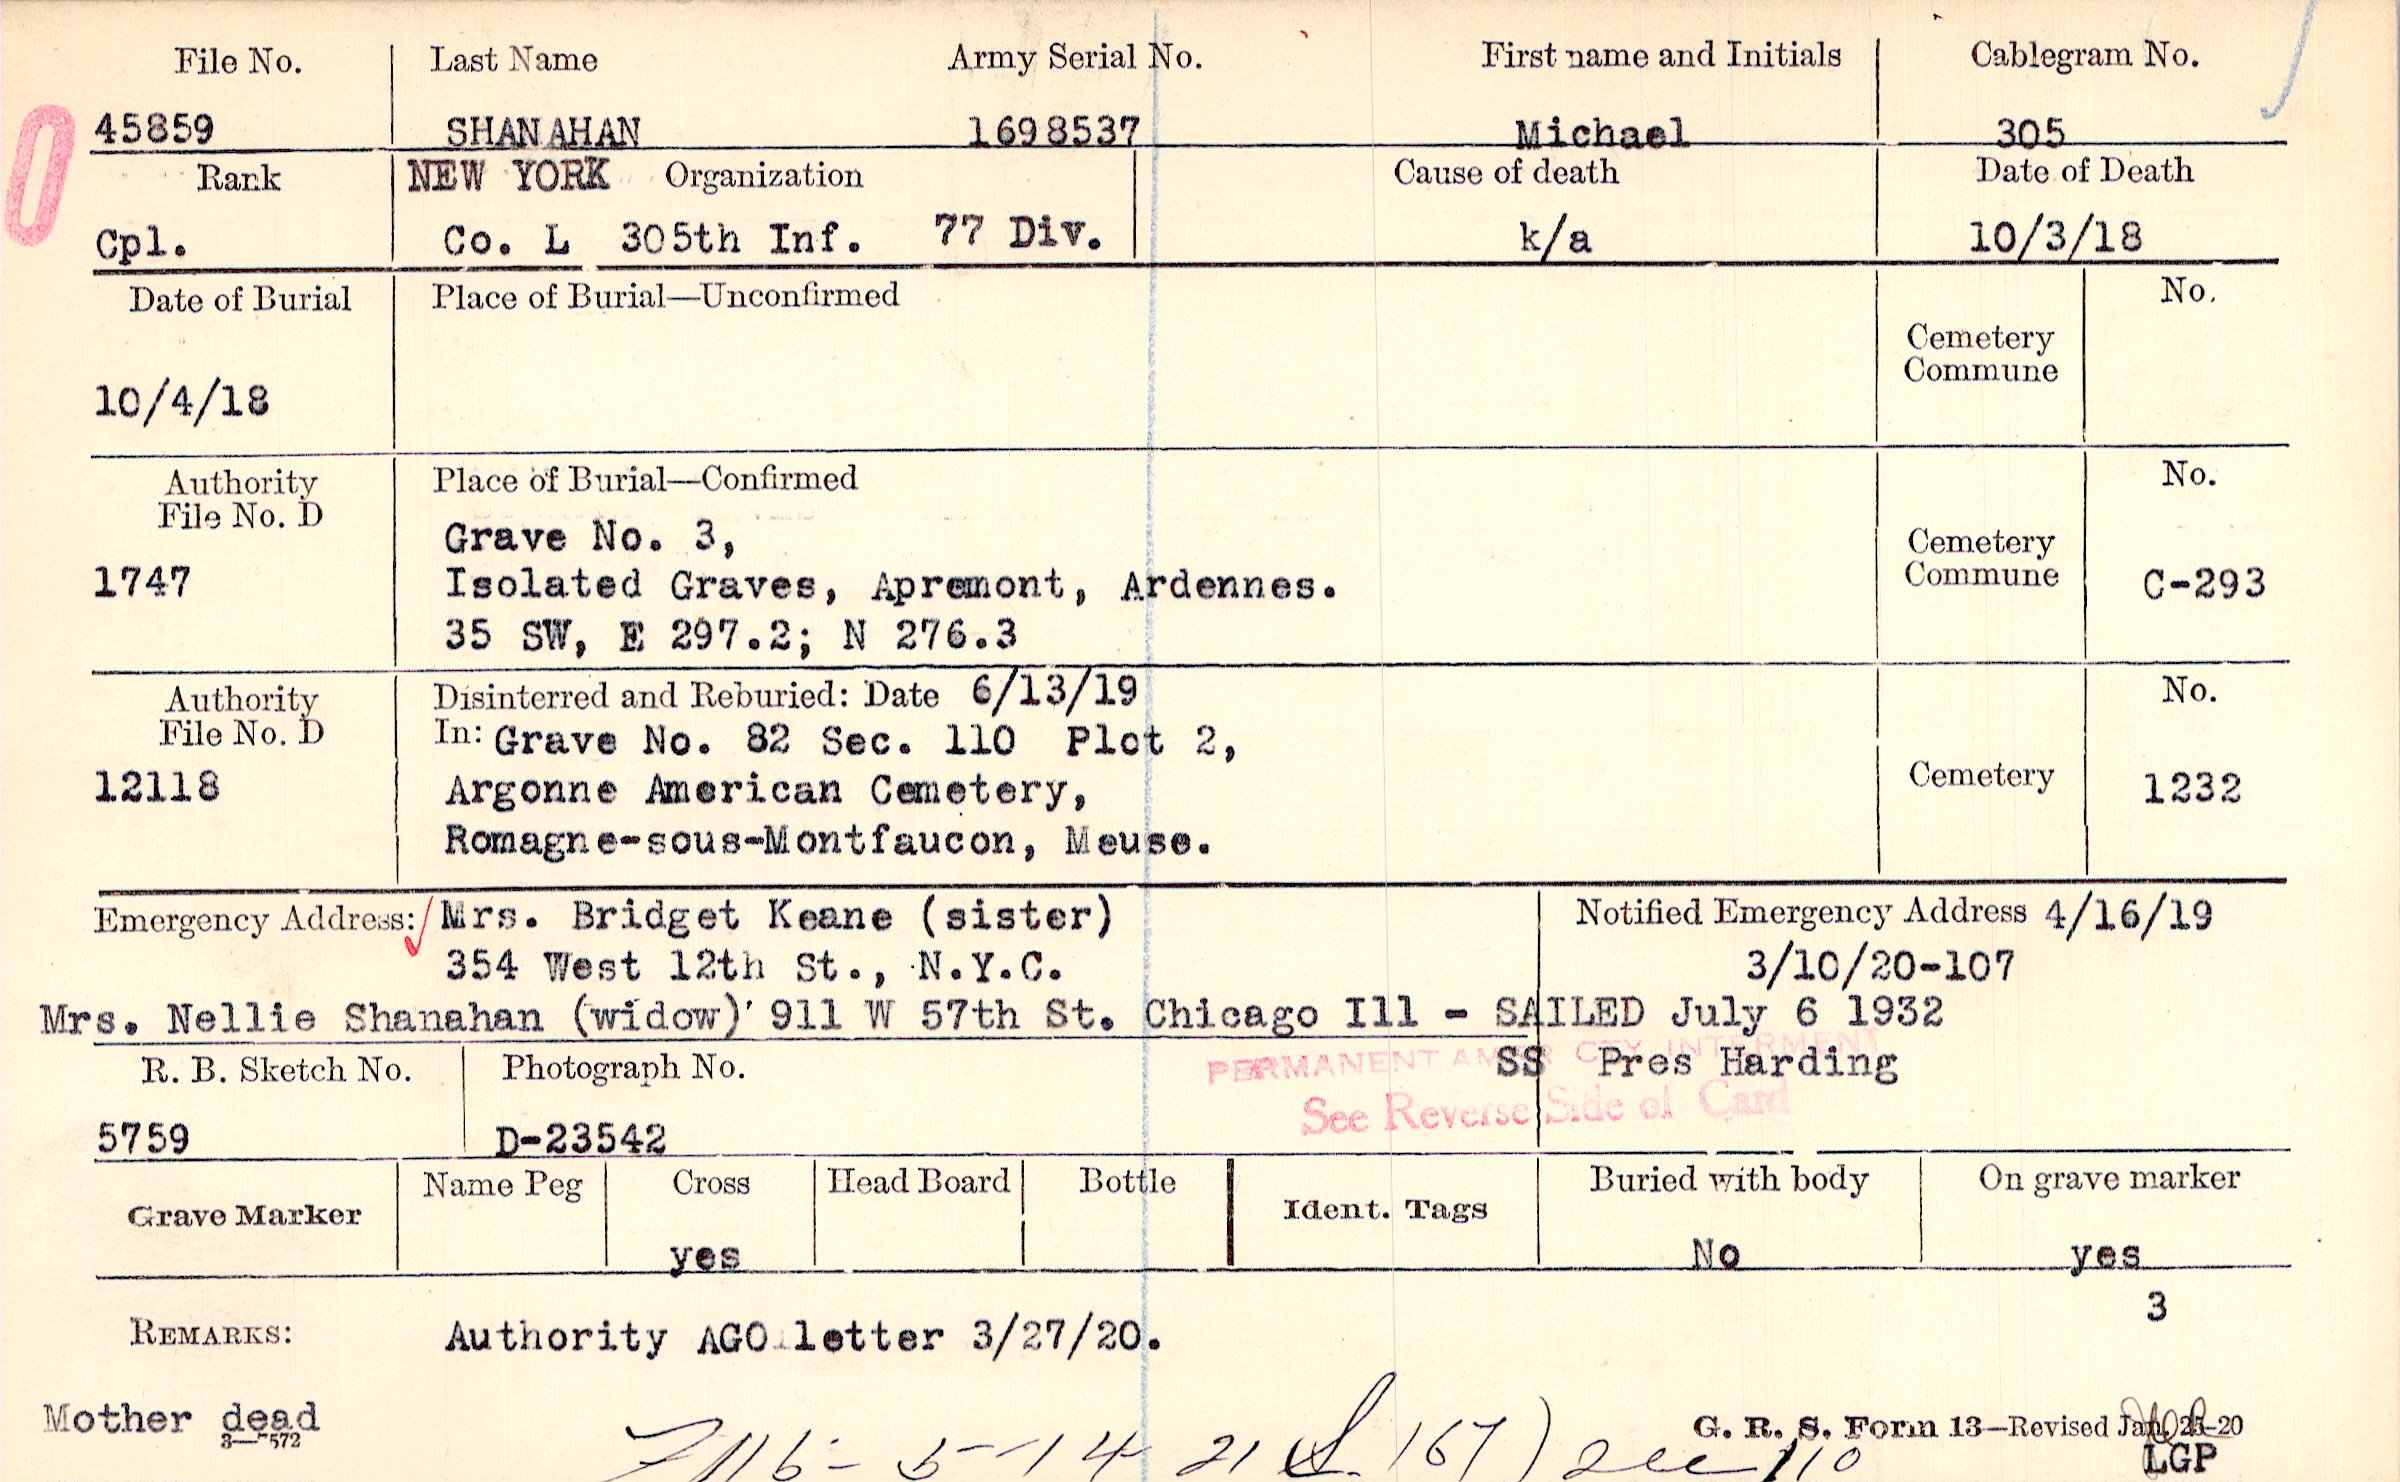 File No. Last Name Army Serial No. First name and Initials Cablegram No.
45859 SHANAHAN 1698537 Michael 305
Rank NEW YORK Organization Cause of death Date of Death
Cpl. Co. L 305th Inf. 77 Div. k/a 10/3/18
Date of Burial Place of Burial—Unconfirmed No.
Cemetery
Commune
10/4/18
Authority Place of Burial—Confirmed No.
File No. D
Grave No. 3,
Cemetery
1747 Isolated Graves, Apremont, Ardennes. Commune C-293
35 SW, E 297.2; N 276.3
Authority Disinterred and Reburied: Date 6/13/19 No.
File No. D In: Grave No. 82 Sec. 110 Plot 2,
12118 Argonne American Cemetery, Cemetery 1232
Romagne-sous-Montfaucon, Meuse.
Emergency Address: Mrs. Bridget Keane (sister) Notified Emergency Address 4/16/19
354 West 12th St., N.Y.C. 3/10/20-107
Mrs. Nellie Shanahan (widow) 911 W 57th St. Chicago Ill - SAILED July 6 1932
PERMANENT AMER CTY INTERMENT
R. B. Sketch No. Photograph No. SS Pres Harding
See Reverse Side of Card
5759 D-23542
Name Peg Cross Head Board Bottle Buried with body On grave marker
Grave Marker Ident. Tags
yes No yes
3
REMARKS: Authority AGO letter 3/27/20.
Mother dead
3—7572
G. R. S. Form 13—Revised Jan. 25-20
5-14-21 167) Sec 110
LGP